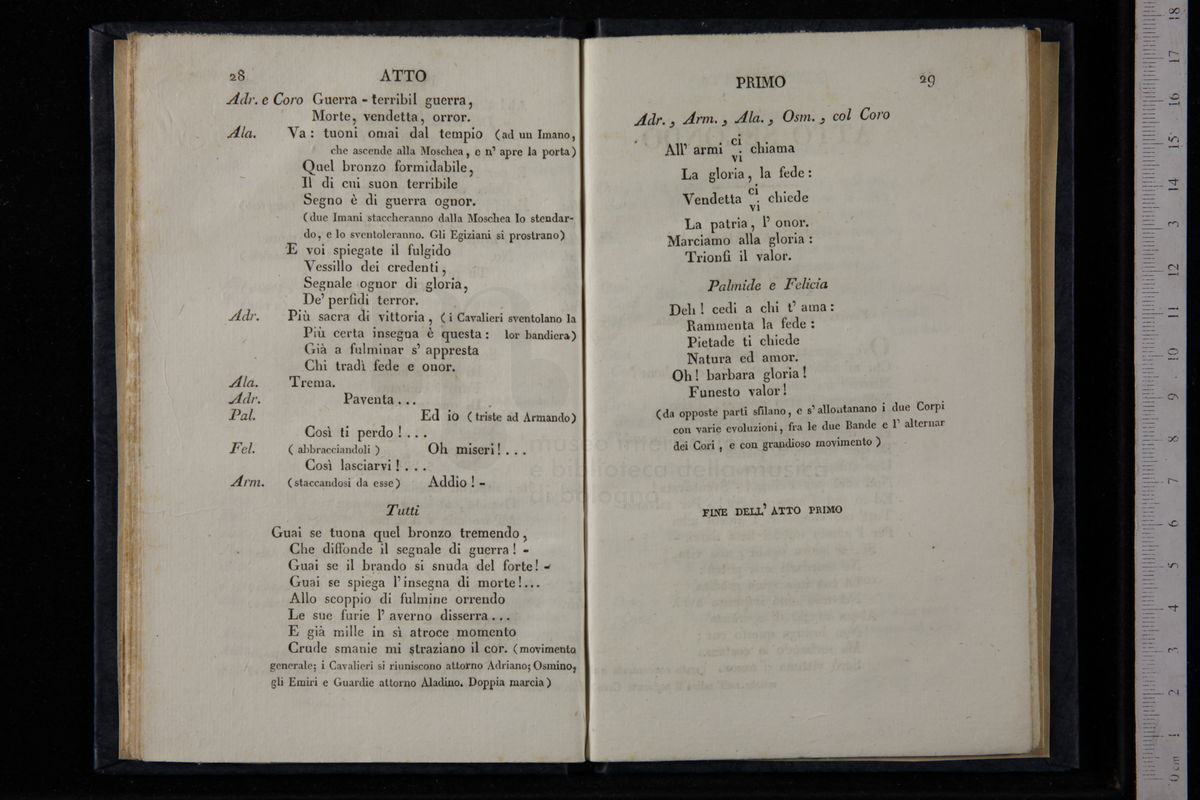 28 ATTO
Adr. e Coro Guerra - terribil guerra,
Morte, vendetta, orror.
Ala. Va : tuoni omai dal tempio (ad un Imano,
che ascende alla Moschea, e n' apre la porta)
Quel bronzo formidabile,
Il di cui suon terribile
Segno è di guerra ognor.
(due Imani staccheranno dalla Moschea lo stendar-
do, e lo sventoleranno. Gli Egiziani si prostrano)
E voi spiegate il fulgido
Vessillo dei credenti,
Segnale ognor di gloria,
De' perfidi terror.
Adr. Più sacra di vittoria, (i Cavalieri sventolano la
Più certa insegna è questa : lor bandiera)
Già a fulminar s' appresta
Chi tradì fede e onor.
Ala. Trema.
Adr. Paventa...
Pal. Ed io (triste ad Armando)
Così ti perdo!...
Fel. (abbracciandoli) Oh miseri!...
Così lasciarvi!...
Arm. (staccandosi da esse) Addio! -
Tutti
Guai se tuona quel bronzo tremendo,
Che diffonde il segnale di guerra! -
Guai se il brando si snuda del forte! -
Guai se spiega l' insegna di morte!...
Allo scoppio di fulmine orrendo
Le sue furie l' averno disserra...
E già mille in sì atroce momento
Crude smanie mi straziano il cor. (movimento
generale; i Cavalieri si riuniscono attorno Adriano; Osmino,
gli Emiri e Guardie attorno Aladino. Doppia marcia)
PRIMO 29
Adr., Arm., Ala., Osm., col Coro
All' armi ci vi chiama
La gloria, la fede :
Vendetta ci vi chiede
La patria, l' onor.
Marciamo alla gloria :
Trionfi il valor.
Palmide e Felicia
Deh! cedi a chi t' ama :
Rammenta la fede :
Pietade ti chiede
Natura ed amor.
Oh! barbara gloria!
Funesto valor!
(da opposte parti sfilano, e s' allontanano i due Corpi
con varie evoluzioni, fra le due Bande e l' alternar
dei Cori, e con grandioso movimento)
FINE DELL' ATTO PRIMO
museo internazionale
e biblioteca della musica
di bologna
0 cm 1 2 3 4 5 6 7 8 9 10 11 12 13 14 15 16 17 18